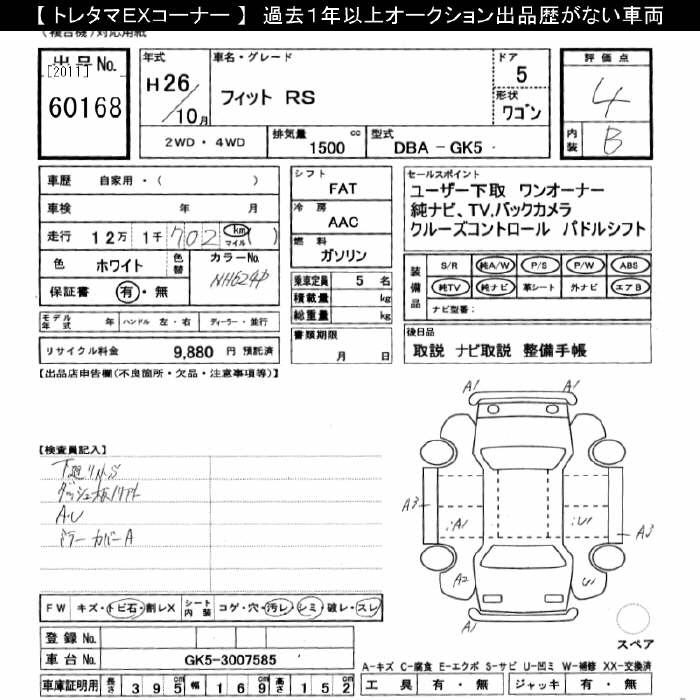 【 トレタマEXコーナー 】 過去１年以上オークション出品歴がない車両
(複合機)対応用紙
出品No.
[2011]
60168
年式
H26/10月
車名・グレード
フィット RS
ドア
5
形状
ワゴン
評価点
4
内装
B
2WD・4WD
排気量
1500
cc
型式
DBA - GK5
車歴 自家用・( )
車検 年 月
走行 12万 1千 702 km マイル ( )
色 ホワイト 色替 カラーNo. NH624P
保証書 有・無
モデル年式 年 ハンドル 左・右 ディーラー・並行
リサイクル料金 9,880 円 預託済
シフト
FAT
冷房
AAC
燃料
ガソリン
乗車定員 5 名
積載量 kg
総重量 kg
書類期限
月 日
セールスポイント
ユーザー下取 ワンオーナー
純ナビ、TV,バックカメラ
クルーズコントロール パドルシフト
装備品
S/R 純A/W P/S P/W ABS
純TV 純ナビ 革シート 外ナビ エアB
ナビ型番：
後日品
取説 ナビ取説 整備手帳
【出品店申告欄(不良箇所・欠品・注意事項等)】
【検査員記入】
下廻リサビS
A・U
ミラーカバーA
A1
A1
A3
A1
U1
A3
A2
U1
A1
スペア
FW キズ・トビ石・割レX シート内装 コゲ・穴・汚レ・シミ・破レ・スレ
登録 No.
車台 No. GK5-3007585
車庫証明用 長さ 395cm 幅 169cm 高さ 152cm
A-キズ C-腐食 E-エクボ S-サビ U-凹ミ W-補修 XX-交換済
工具 有・無 ジャッキ 有・無